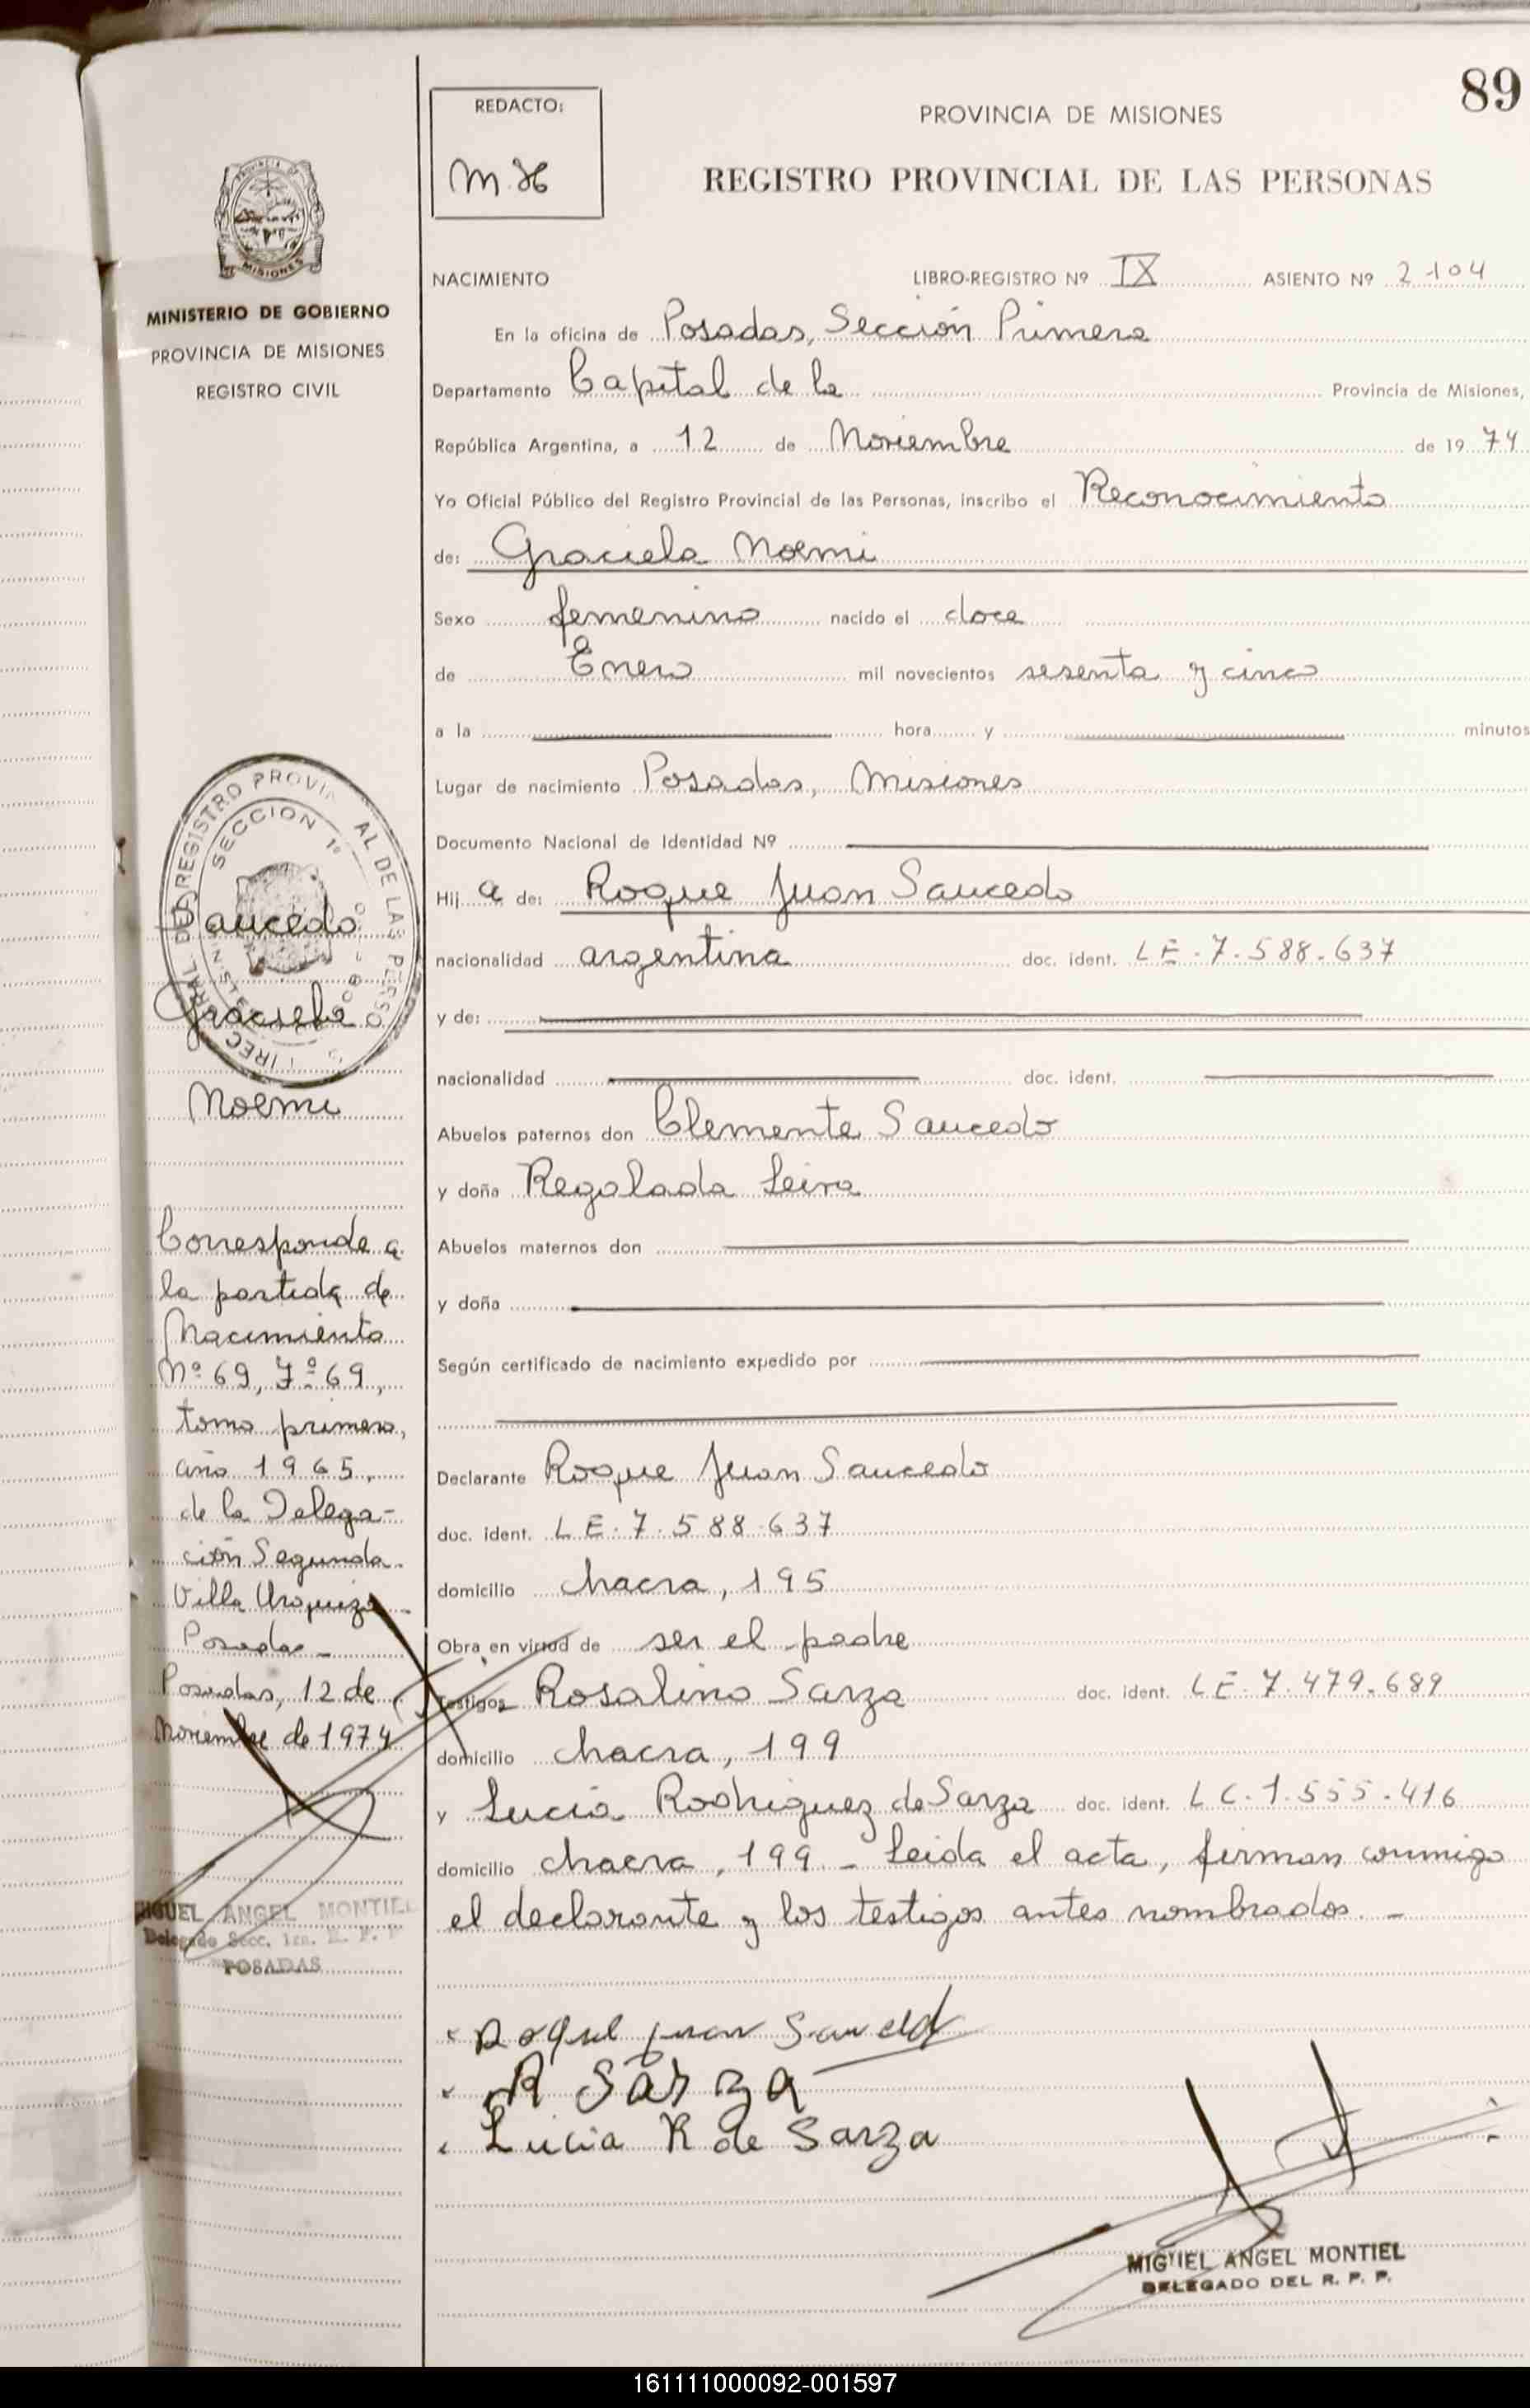 89
REDACTO:
PROVINCIA DE MISIONES
REGISTRO PROVINCIAL DE LAS PERSONAS
MISIONES
MINISTERIO DE GOBIERNO
PROVINCIA DE MISIONES
REGISTRO CIVIL
NACIMIENTO LIBRO-REGISTRO Nº IX ASIENTO Nº 2104
En la oficina de Posadas, Sección Primera
Departamento Capital de la Provincia de Misiones,
República Argentina, a 12 de Noviembre de 1974
Yo Oficial Público del Registro Provincial de las Personas, inscribo el Reconocimiento
de: Graciela Noemi
Sexo femenino nacido el doce
de Enero mil novecientos sesenta y cinco
a la hora y minutos
Lugar de nacimiento Posadas, Misiones
Documento Nacional de Identidad Nº
Hij a de: Roque Juan Saucedo
nacionalidad argentina doc. ident. LE-7.588.637
y de:
nacionalidad doc. ident.
Abuelos paternos don Clemente Saucedo
y doña Regalada Leiva
Abuelos maternos don
y doña
Según certificado de nacimiento expedido por
Declarante Roque Juan Saucedo
doc. ident. LE-7.588.637
domicilio chacra, 195
Obra en virtud de ser el padre
Testigos Rosalino Sarza doc. ident. LE-7.479.689
domicilio chacra, 199
y Lucia Rodriguez de Sarza doc. ident. LC-1.555.416
domicilio chacra, 199 - Leida el acta, firman conmigo
el declarante y los testigos antes nombrados. -
Roque Juan Saucedo
R Sarza
Lucia R de Sarza
MIGUEL ANGEL MONTIEL
DELEGADO DEL R. P. P.
SECCION 1ª
Saucedo
Graciela
Noemi
Corresponde a
la partida de
Nacimiento
Nº 69, Fº 69,
tomo primero,
año 1965,
de la Delega-
ción Segunda
Villa Urquiza
Posadas -
Posadas, 12 de
Noviembre de 1974
MIGUEL ANGEL MONTIEL
Delegado Secc. 1ra. R. P. P
POSADAS
161111000092-001597